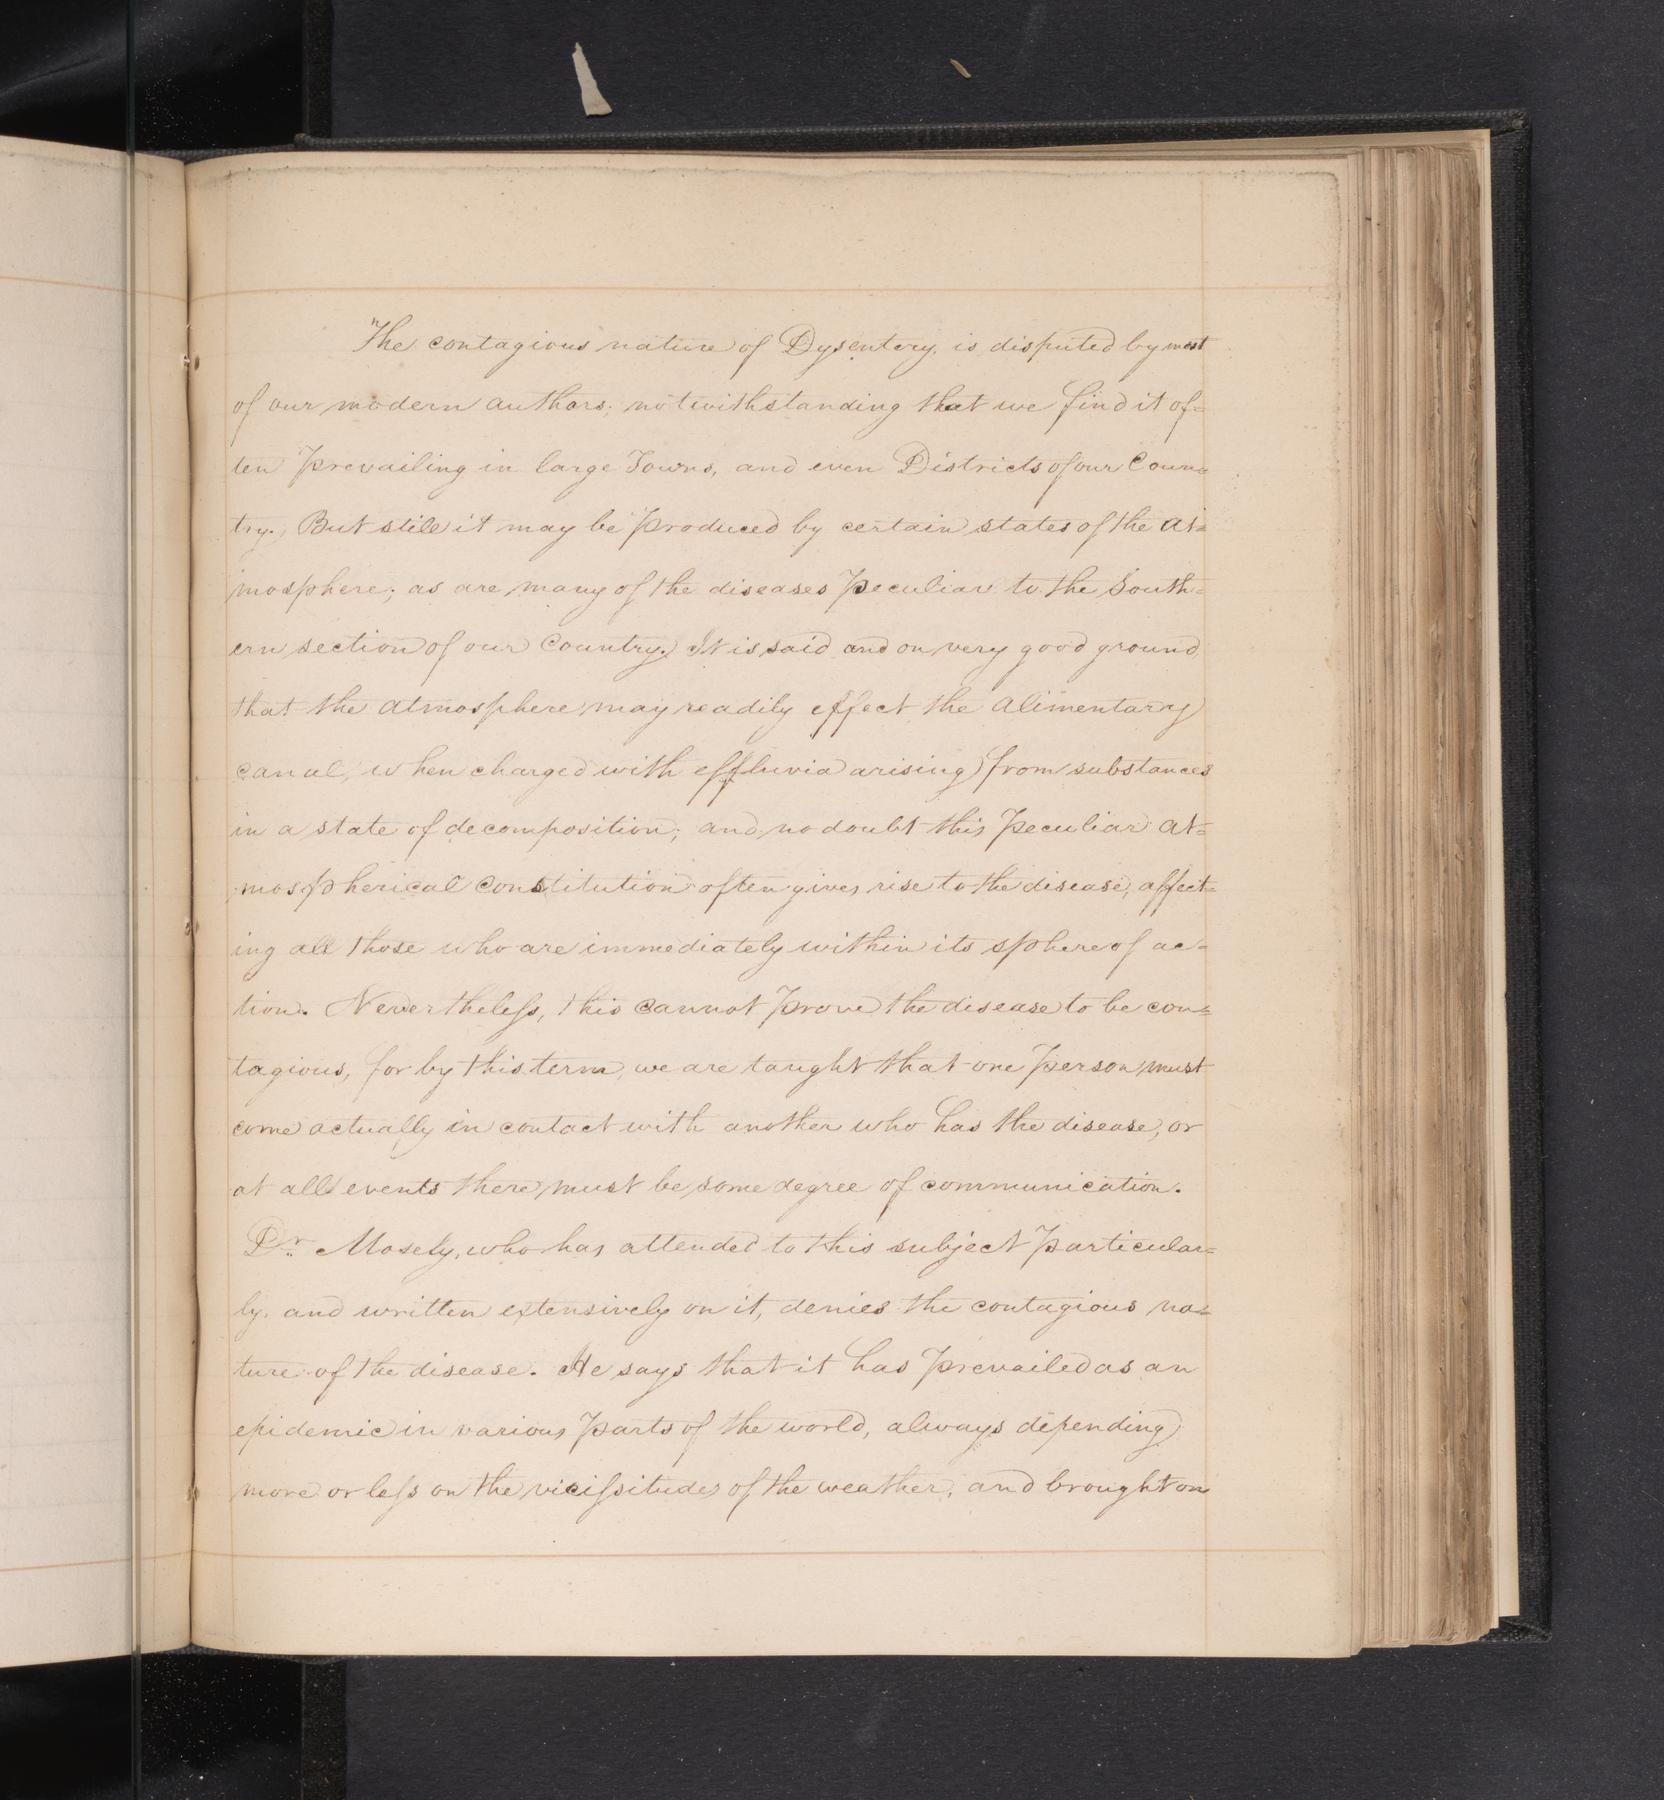 The contagious nature of Dysentery, is disputed by most
of our modern authors; notwithstanding that we find it of=
ten prevailing in large Towns, and even Districts of our Coun=
try. But still it may be produced by certain states of the at=
mosphere; as are many of the diseases peculiar to the South=
ern section of our Country. It is said and on very good ground,
that the atmosphere may readily effect the alimentary
canal, when charged with effluvia arising from substances
in a state of decomposition; and no doubt this peculiar at=
mospherical constitution often gives rise to the disease, affect=
ing all those who are immediately within its sphere of ac=
tion. Nevertheless, this cannot prove the disease to be con=
tagious, for by this term, we are taught that one person must
come actually in contact with another who has the disease, or
at all events there must be some degree of communication.
Dr. Mosely, who has attended to this subject particular=
ly, and written extensively on it, denies the contagious na=
ture of the disease. He says that it has prevailed as an
epidemic in various parts of the world, always depending
more or less on the vicissitudes of the weather, and brought on